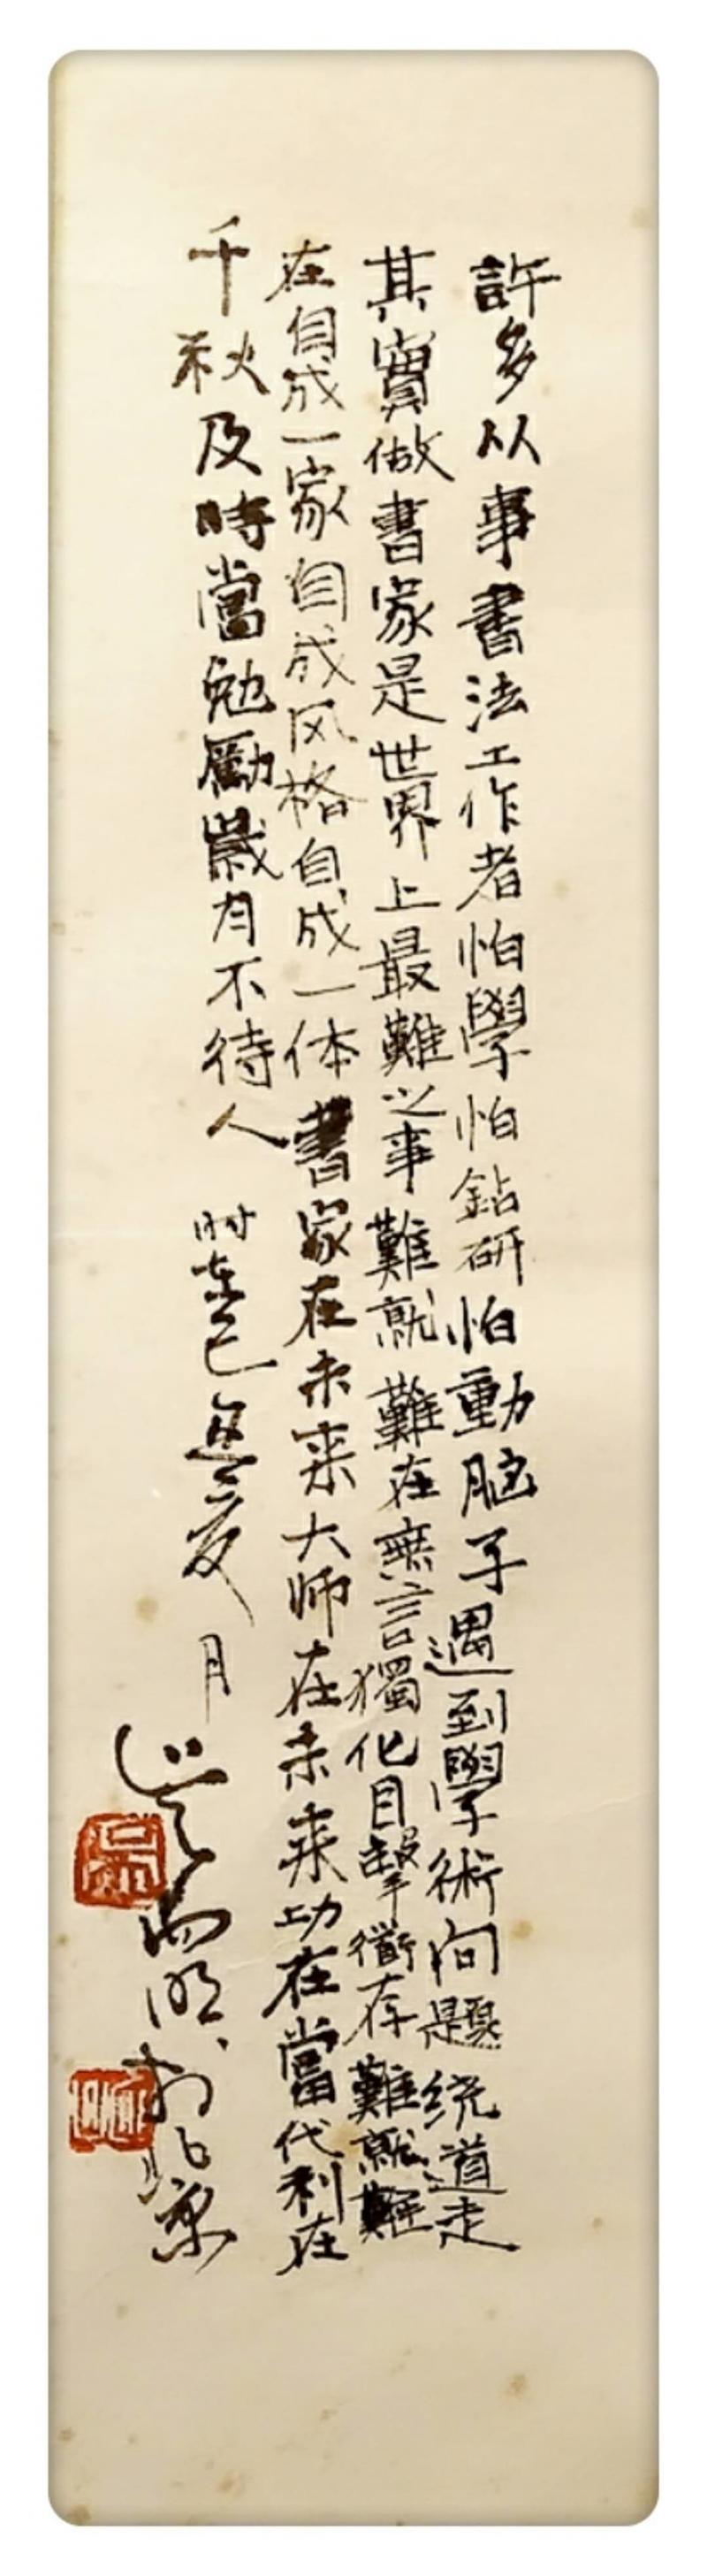 許多从事書法工作者怕學怕鈷研怕動脑子遇到學術问题绕道走
其實做書家是世界上最難之事難就難在無言獨化目擊道存難就難
在自成一家自成风格自成一体書家在未来大师在未来功在當代利在
千秋及時當勉勵歲月不待人 时在己丑夏月
於北京